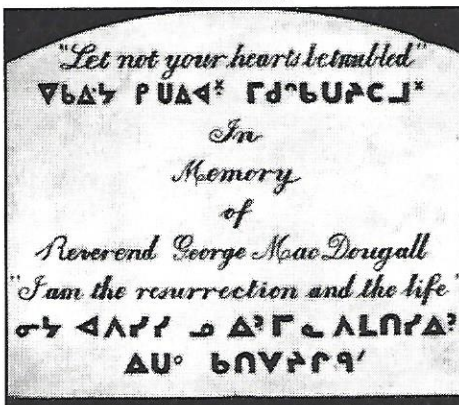 "Let not your hearts be troubled"
ᐁᑲᐃᐧᔭ ᑭ ᑌᐃᐊᕽ ᒥᑯᐢᑲᑌᔨᑕᒧᕽ
In
Memory
of
Reverend George MacDougall
"I am the resurrection and the life"
ᓂᔭ ᐊᐱᓯᓯ ᓄ ᐃᐣ ᒥ ᓇ ᐱᒪᑎᓯᐃᐣ
ᐃᑌᐤ ᑲᑎᐯᔨᒋᑫᐟ